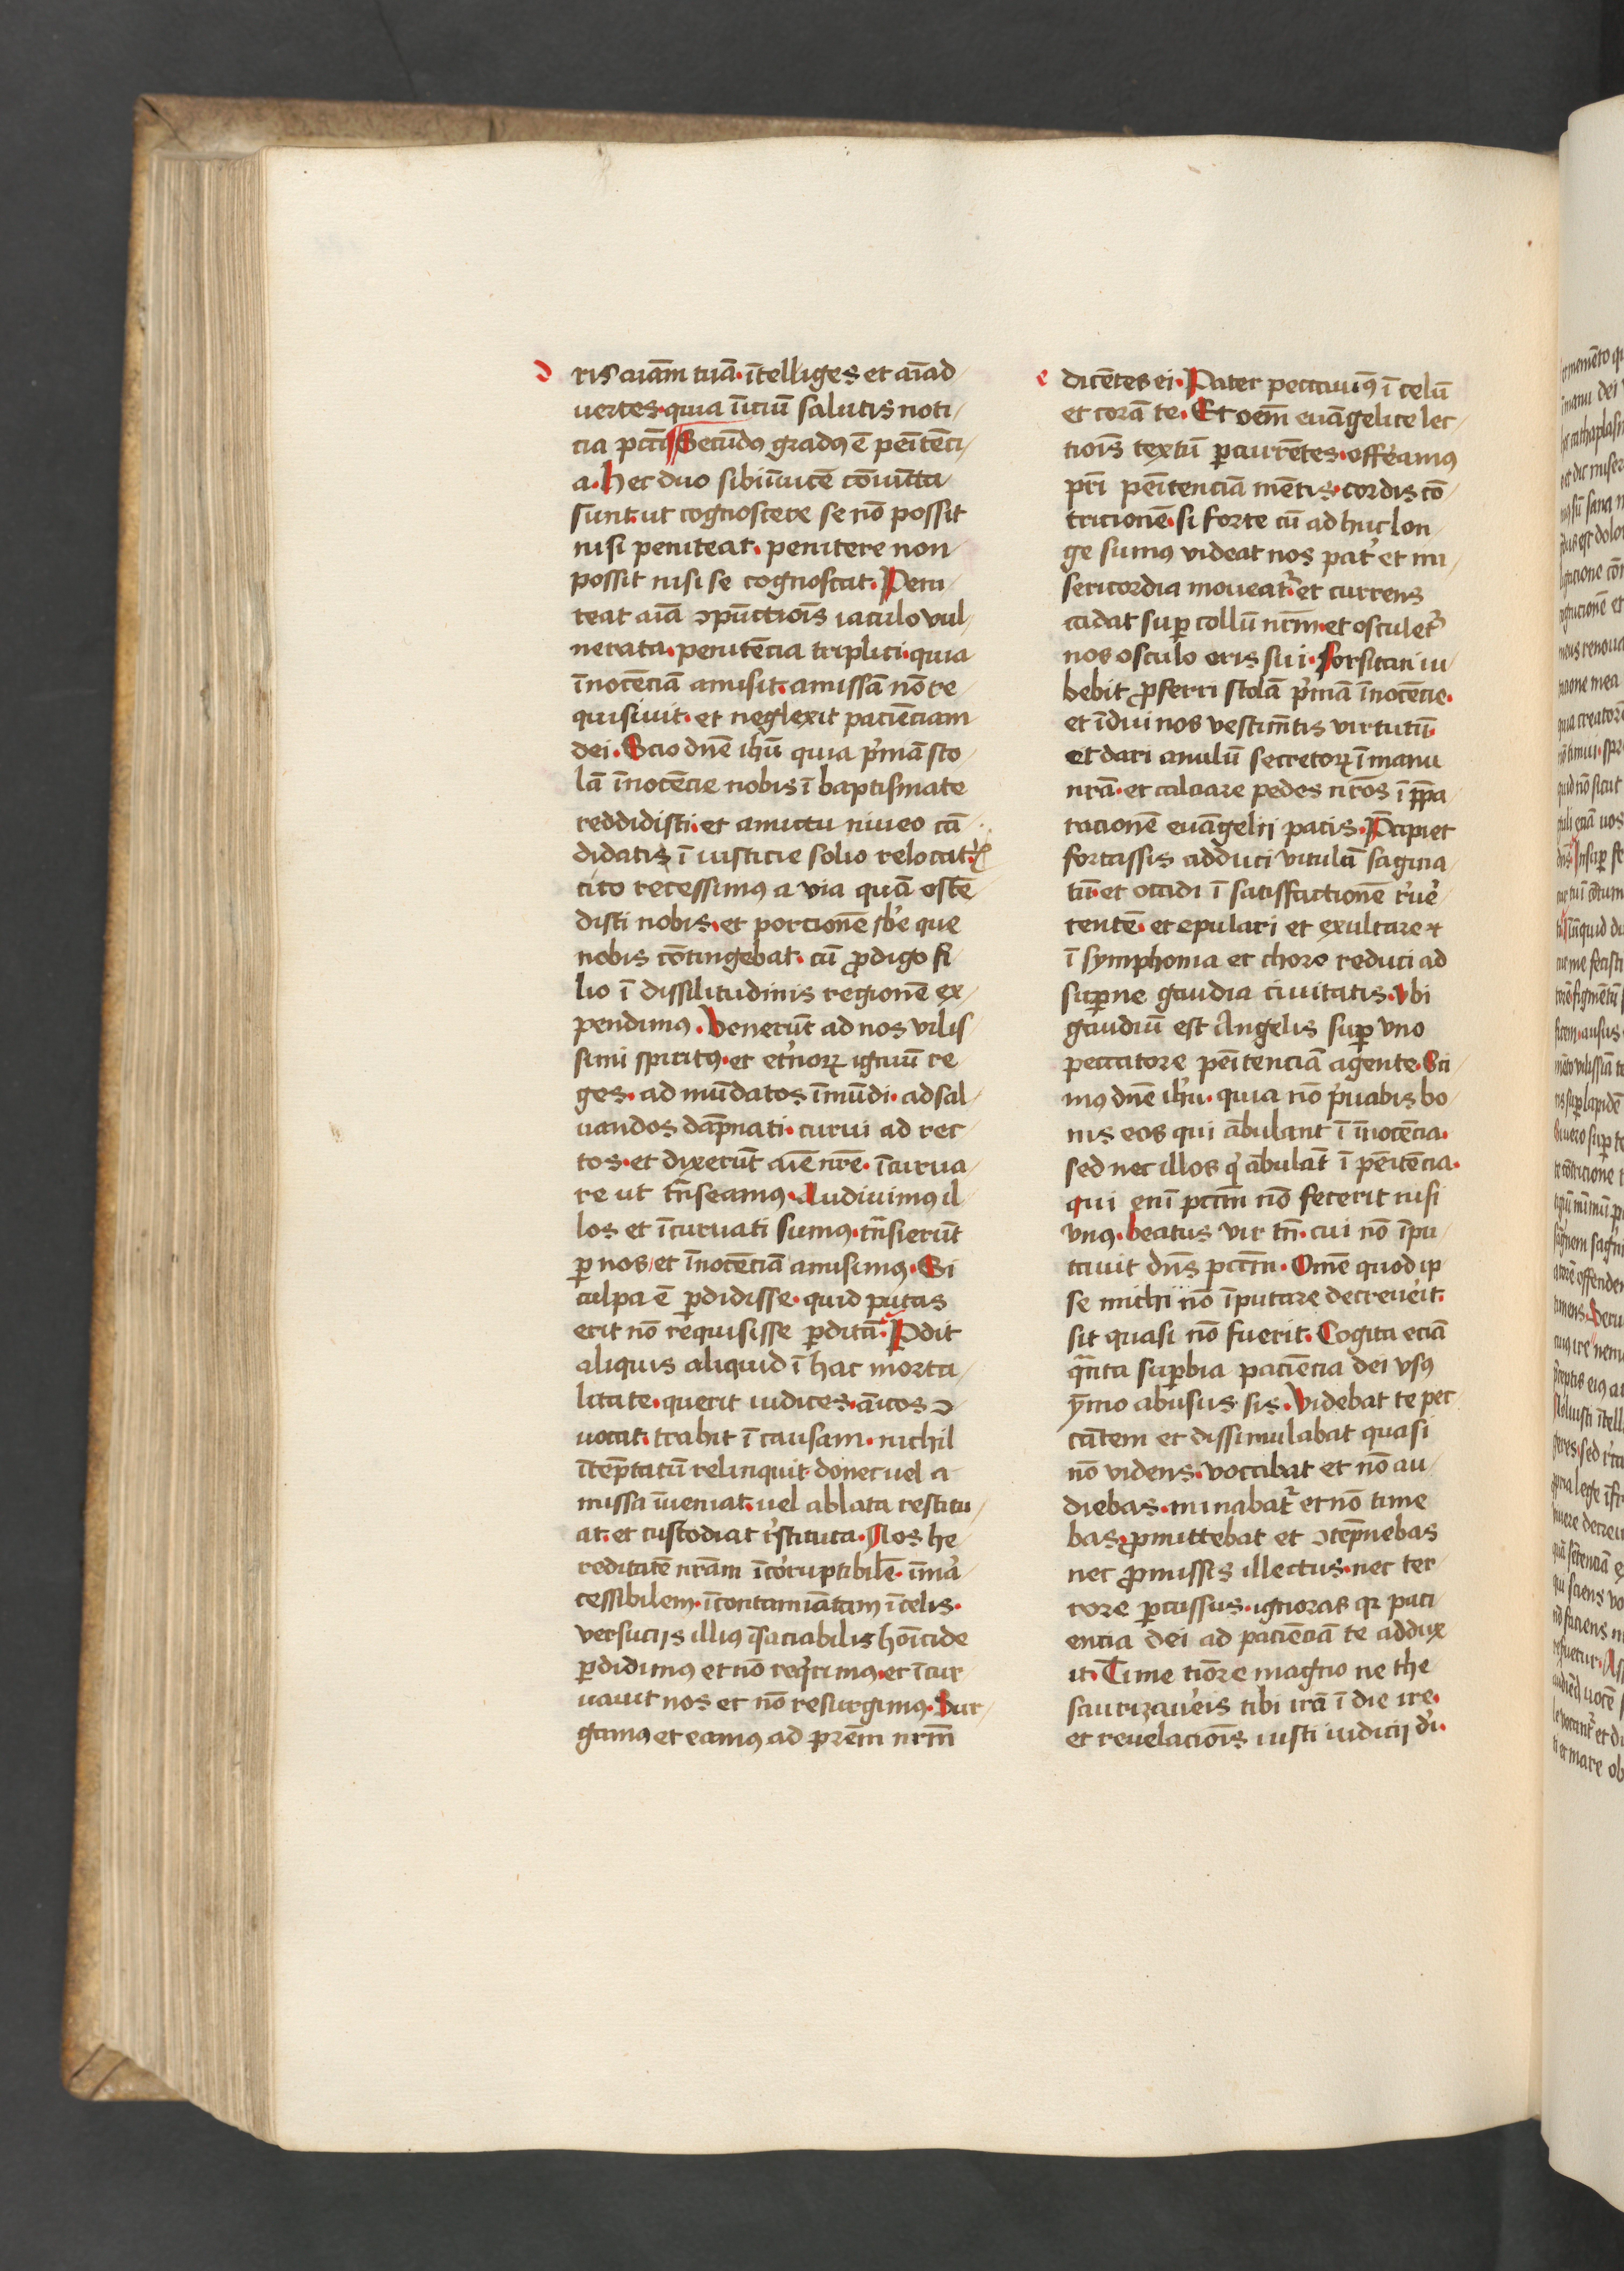 d
ris aiām tuā · ītelliges et aīad
uertes · quia īiciū salutis noti
cia pccti Secūdus gradꝰ ē penītēci
a · Hec duo sibiīuicē cōiūcta
sunt · ut cognoscere se nō possit
nisi peniteat · penitere non
possit nisi se cognoscat · Peni
teat aīa ↄpūctiōis iaculo vul
nerata · penitēcia triplici · quia
īnocēciā amisit · amissā nō re
quisiuit · et neglexit paciēciam
dei · Scio dn̄e ihū quia pͥmā sto
lā īnocēcie nobis ī baptismate
reddidisti · et amictu niueo cā
didatis ī iusticie solio relocatꝭ
cito recessimꝰ a via quā ostē
disti nobis · et porcionē sbͤe que
nobis cōtingebat · cū ꝓdigo fi
lio ī dissilitudinis regionē ex
pendimꝰ · Venerūt ad nos vilis
simi spiritꝰ · et etͥnoꝝ igniū re
ges · ad mūdatos īmūdi · ad sal
uandos dāpnati · curui ad rec
tos · et dixerūt aīe nr̄e · īcurua
re ut trn̄seamꝰ · Audiuimꝰ il
los et īcuruati sumꝰ · trn̄sierūt
ꝑ nos et īnocēciā amisimꝰ · Si
culpa ē ꝑdidisse · quid putas
erit nō requisisse ꝑditā · Pdit
aliquis aliquid ī hac morta
litate · querit iudices · aīcos ↄ
uocat · trahit ī causam · nichil
ītēptatū relinquit · donec uel a
missa īueniat · uel ablata restitu
at · et custodiat rͥstituta · Nos he
reditatē nrām īcoruptibilē · īmar
cessibilem · īcontamīatam ī celis ·
versucijs illiꝰ īsaciabilis homīcide
ꝑdidimꝰ et nō reqͥrimꝰ · et īcur
uauit nos et nō resurgimꝰ · Sur
gamꝰ et eamꝰ ad prēm nrm̄
e
dicētes ei · Pater peccauimꝰ ī celū
et corā te · Et oēm euāgelice lec
tiōis textū ꝑcurrētes · offeramꝰ
pr̄i penītenciā mētis · cordis cō
tricionē · si forte cū adhuc lon
ge sumꝰ videat nos patͥ et mi
sericordia moueatͥ et currens
cadat suꝑ collū nrm̄ · et osculetͥ
nos osculo oris sui · Forsitan iu
bebit ꝓferri stolā pͥmā īnocēcie ·
et īdui nos vestimētis virtutū ·
et dari anulū secretoꝝ ī manu
nrā · et calciare pedes nr̄os ī p̄pa
racionē euāgelij pacis · Pcipiet
fortassis adduci vitulū sagina
tū · et occidi ī satisfactionē rͥuͤe
rentē · et epulari et exultare ⁊
ī symphonia et choro reduci ad
suꝑne gaudia ciuitatis · Vbi
gaudiū est Angelis suꝑ vno
peccatore penītenciā agente · Sci
mꝰ dn̄e ihu · quia nō pͥuabis bo
nis eos qui ābulant ī īnocēcia ·
sed nec illos qͥ ābulāt ī penītēcia ·
qui enī pctm̄ nō fecerit nisi
vnꝰ · beatus vir tn̄ · cui nō īpu
tauit dn̄s pctm̄ · Omē quod ip
se michi nō īputare decreuerit ·
sit quasi nō fuerit · Cogita eciā
qͣnta suꝑbia paciēcia dei vsꝰ
ymo abusus sis · Videbat te pec
cātem et dissimulabat quasi
nō videns · vocabat et nō au
diebas · minabatͥ et nō time
bas · ꝓmittebat et ↄtēpnebas
nec ꝓmissis illectus · nec ter
rore ꝑcussus · ignoras qꝛ paci
encia dei ad paciēciā te addux
it · Time tīore magno ne the
saurizaueris tibi irā ī die ire ·
et reuelaciōis iusti iudicij dͥi ·